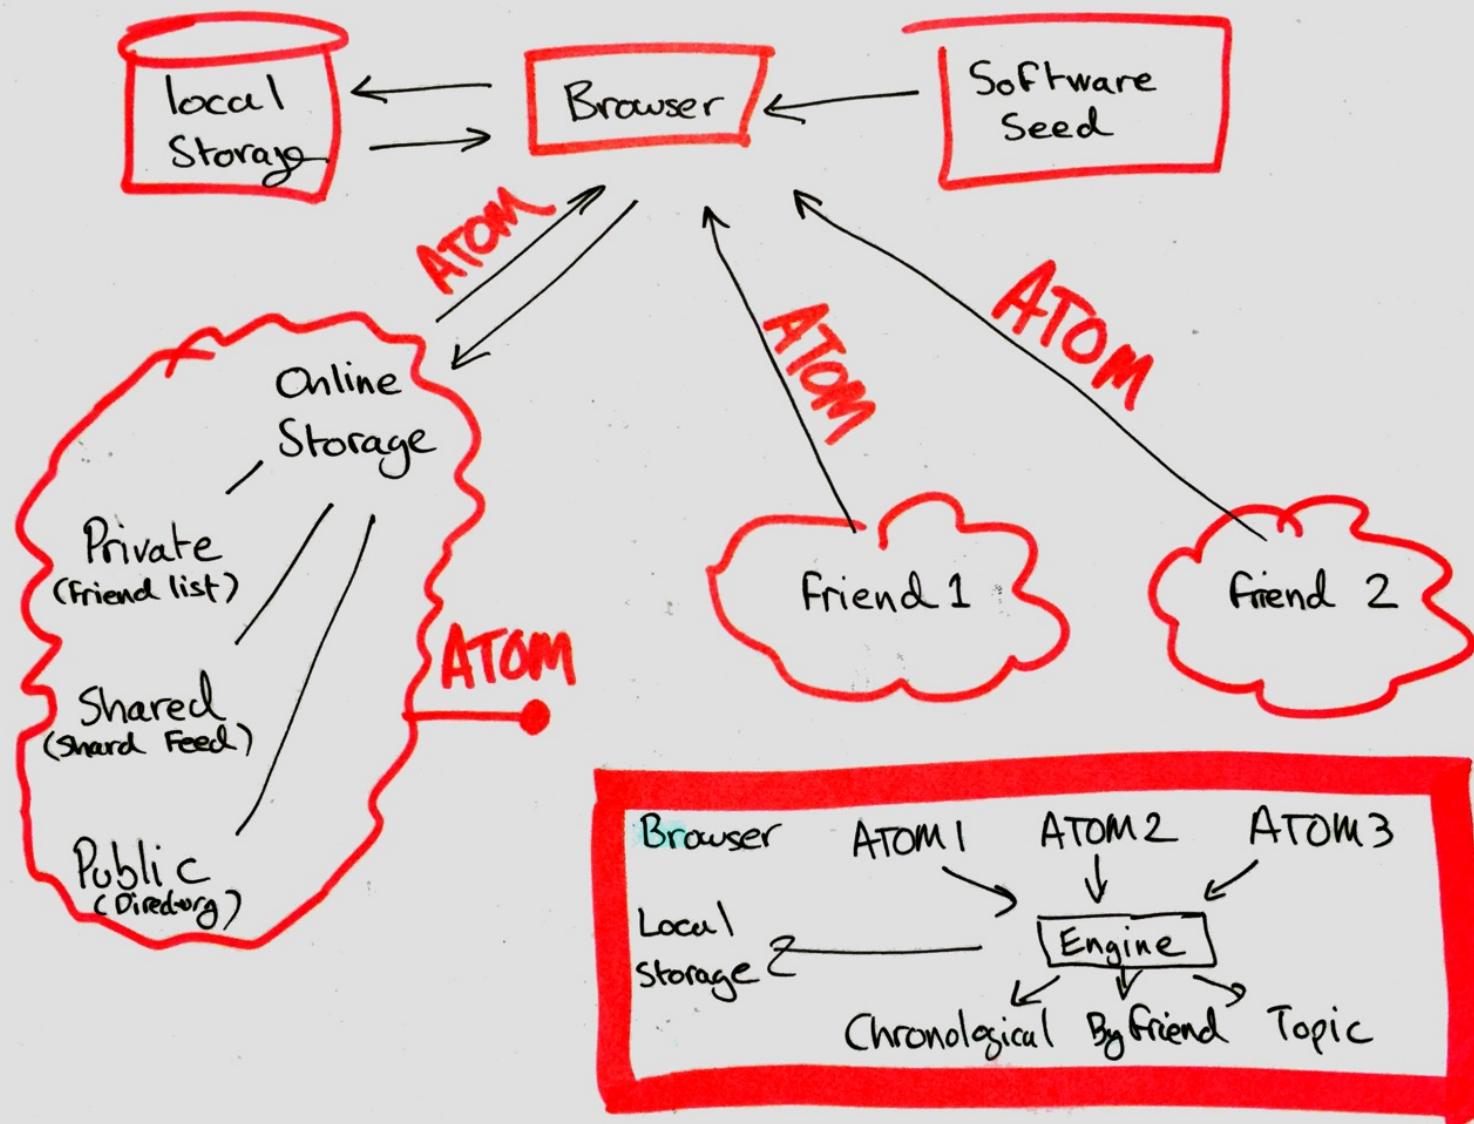 local
Storage
Browser
Software
Seed
ATOM
ATOM
ATOM
Online
Storage
Private
(Friend list)
Shared
(Shard Feed)
Public
(Directory)
ATOM
Friend 1
Friend 2
Browser
ATOM1
ATOM2
ATOM3
Local
Storage
Engine
Chronological
By friend
Topic